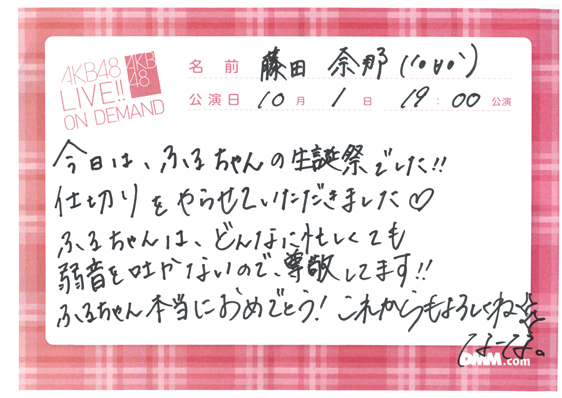 AKB48
LIVE!!
ON DEMAND
AKB
48
名前 藤田 奈那
公演日 10月1日 19:00公演
今日は、ふるちゃんの生誕祭でした!!
仕切りをやらせていただきました♡
ふるちゃんは、どんなに忙しくても
弱音を吐かないので、尊敬してます!!
ふるちゃん本当におめでとう! これからもよろしくね
なーな。
DMM.com